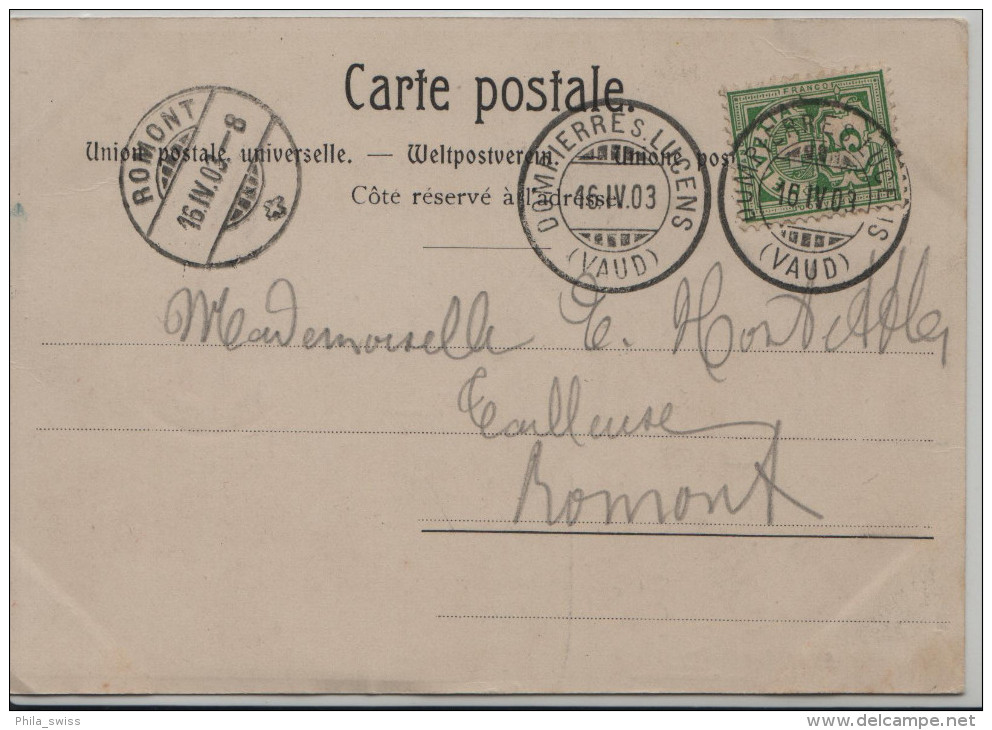 Carte postale.
Union postale universelle. — Weltpostverein. Unione postale
Côté réservé à l'adresse.
ROMONT
16.IV.03–8
DOMPIERRE S. LUCENS
16.IV.03
(VAUD)
FRANCO
16.IV.03
(VAUD)
Mademoiselle E.
Tailleuse
Romont
Phila_swiss
www.delcampe.net